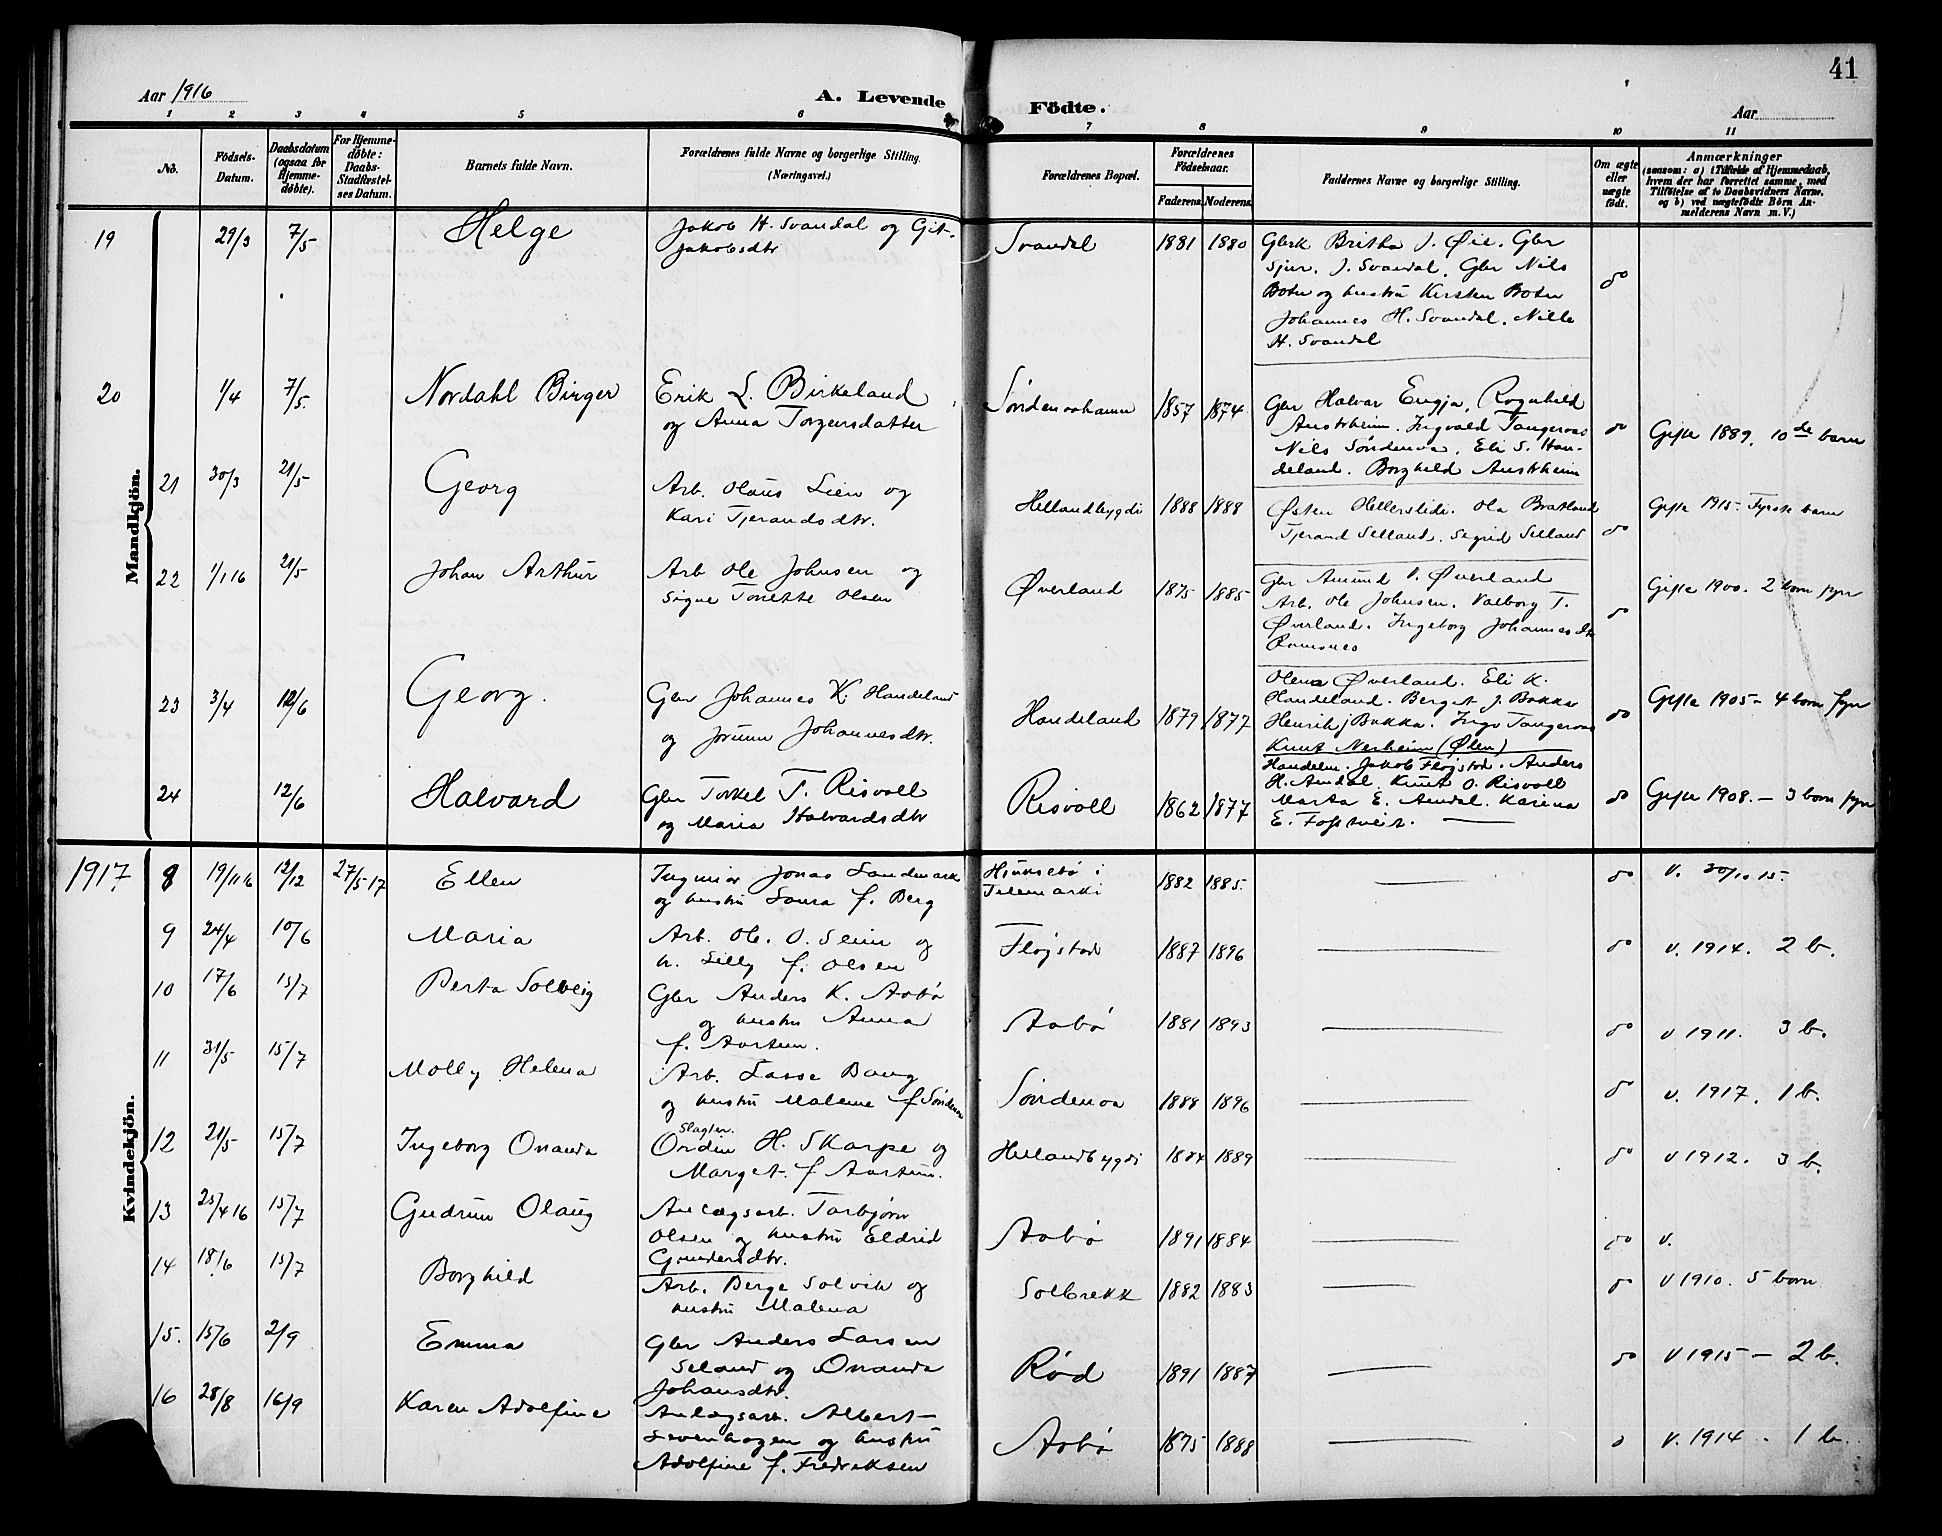 41
Aar 1916
A. Levende Födte.
Aar
1 2 3 4 5 6 7 8 9 10 11
No.
Födsels-Datum.
Daabsdatum (ogsaa for Hjemme-döbte).
For Hjemme-döbte: Daabs-Stadfæstel-ses Datum.
Barnets fulde Navn.
Forældrenes fulde Navne og borgerlige Stilling.
(Næringsvei.)
Forældrenes Bopæl.
Forældrenes Födselsaar.
Faderens Moderens
Faddernes Navne og borgerlige Stilling.
Om ægte eller uægte födt.
Anmærkninger
(saasom: a) i Tilfælde af Hjemmedaab,
hvem der har forrettet samme, med
Tilföielse af to Daabsvidners Navne,
og b) ved uægtefödte Börn An-
melderens Navn m. V.)
Mandkjön.
19 29/3 7/5 Helge
Jakob H. Svandal og Git.
Jakobsdtr
Svandal 1881 1880
Gbrk Britha J. Øie. Gbr
Sjur. J. Svandal. Gbr Nils
Boten og hustru Kirsten Boten
Johannes H. Svandal. Nille
H. Svandal
20 1/4 7/5 Nordahl Birger
Erik L. Birkeland
og Anna Torgersdatter
Søndenaahamn 1857 1874
Gbr Halvar Engja, Rognhild
Austrheim. Ingvald Tangeraas
Nils Søndenaa. Eli S. Han-
deland. Borghild Austrheim
Gifte 1889. 10de barn
21 30/3 21/5 Georg
Arb. Olaus Lien og
Kari Tjerandsdtr.
Hellandbygdi 1888 1888
Østen Hellerslidi. Ola Bratland
Tjerand Selland. Sigrid Selland
Gifte 1915 - Fyrste barn
22 1/1 16 21/5 Johan Arthur
Arb Ole Johnsen og
Signe Tonette Olsen
Øverland 1875 1885
Gbr Amund V. Øverland
Arb. Ole Johnsen. Valborg T.
Øverland. Ingeborg Johannesdtr
Ramsnes
Gifte 1900. 2 born fyrr
23 3/4 12/6 Georg.
Gbr Johannes K. Handeland
og Jorunn Johannesdtr.
Handeland 1879 1877
Olena Øverland. Eli K.
Handeland. Berget J. Bakka
Henrik J Bakka. Inga Tangeraas
Knut Nerheim (Ølen)
Gifte 1905 - 4 born fyrr
24 12/6 Halvard
Gbr Torkel T. Risvoll
og Maria Halvardsdtr
Risvoll 1862 1877
Handelm. Jakob Fløjstad. Anders
H. Amdal. Knut O. Risvoll
Marta E. Amdal. Karina
E. Fosstveit.
Gifte 1908. - 3 born fyrr
1917
Kvindekjön.
8 19/11 6 12/12 27/5 17 Ellen
Ingeniør Jonas Landmark
og hustru Laura f. Berg
i
Telemarki 1882 1885.
V. 30/10 15.
9 24/4 10/6 Maria
Arb. Ole. O. Seim og
h. Lilly f. Olsen
Fløjstad 1887 1896
V. 1914. 2 b.
10 17/6 15/7 Berta Solveig
Gbr Anders K. Aabø
og hustru Anna
f. Aartun.
Aabø 1881 1893
V 1911. 3 b.
11 31/5 15/7 Molly Helena
Arb. Lasse Baug
og hustru Malene f Søndenaa
Søndenaa 1888 1896
V. 1917. 1 b.
12 21/5 15/7 Ingeborg Onanda
Slagter.
Ordin H. Skarpe og
Marget f Aartun.
Hellandbygdi 1884 1889
V 1912. 3 b.
13 25/4 16 15/7 Gudrun Olaug
Anlægsarb. Torbjørn
Olsen og hustru Eldrid
Gundersdtr.
Aabø 1891 1884
V.
14 18/6 15/7 Borghild
Arb. Berge Solvik og
hustru Malena
Solbrekk 1882 1883
V 1910. 5 born
15. 15/6 2/9 Emma
Gbr Anders Larsen
Seland og Onanda
Johansdtr.
Rød 1891 1887
V 1915 - 2 b.
16 28/8 16/9 Karen Adolfine
Anlægsarb. Albert
Levenhagen og hustru
Adolfine f. Fredriksen
Aabø 1875 1888
V. 1914 - 1 b.